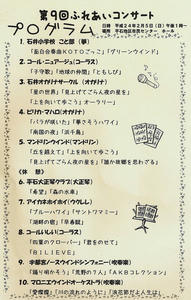 第9回ふれあいコンサート
プログラム
日時 平成24年2月5日（日）午後1時～
場所 平石地区市民センター ホール
1. 石井小学校 こと部（箏）
「箏独奏KOTOごっこ」「グリーンウインド」
2. コール・ニューアージュ（コーラス）
「子守歌」「地球の仲間」「ともしび」
3. 石井オカリナサークル（オカリナ）
「見上げてごらん夜の星を」
「上を向いて歩こう」「オーラリー」
4. ピリカ・マハロ（オカリナ）
「バラが咲いた」「華そうろう」
「南国の夜」「浜千鳥」
5. マンドリンウインド（マンドリン）
「丘を越えて」「上を向いて歩こう」
「見上げてごらん夜の星を」「誰か故郷を思わざる」
《休憩》
6. 平石大正琴クラブ（大正琴）
「希望」「森の水車」
7. アイカネホイホイ（ウクレレ）
「ブルーハワイ」「サントワマミー」
「湖畔の宿」「早春賦」
8. コールいしい（コーラス）
「四葉のクローバー」「君をのせて」
「BELIEVE」
9. 宇都宮ノースウインドシンフォニー（吹奏楽）
「踊り明かそう」「荒野の7人」「AKBコレクション」
10. マロニエウインドオーケストラ（吹奏楽）
「愛燦燦」「川の流れのように」「浪花節だよ人生は」